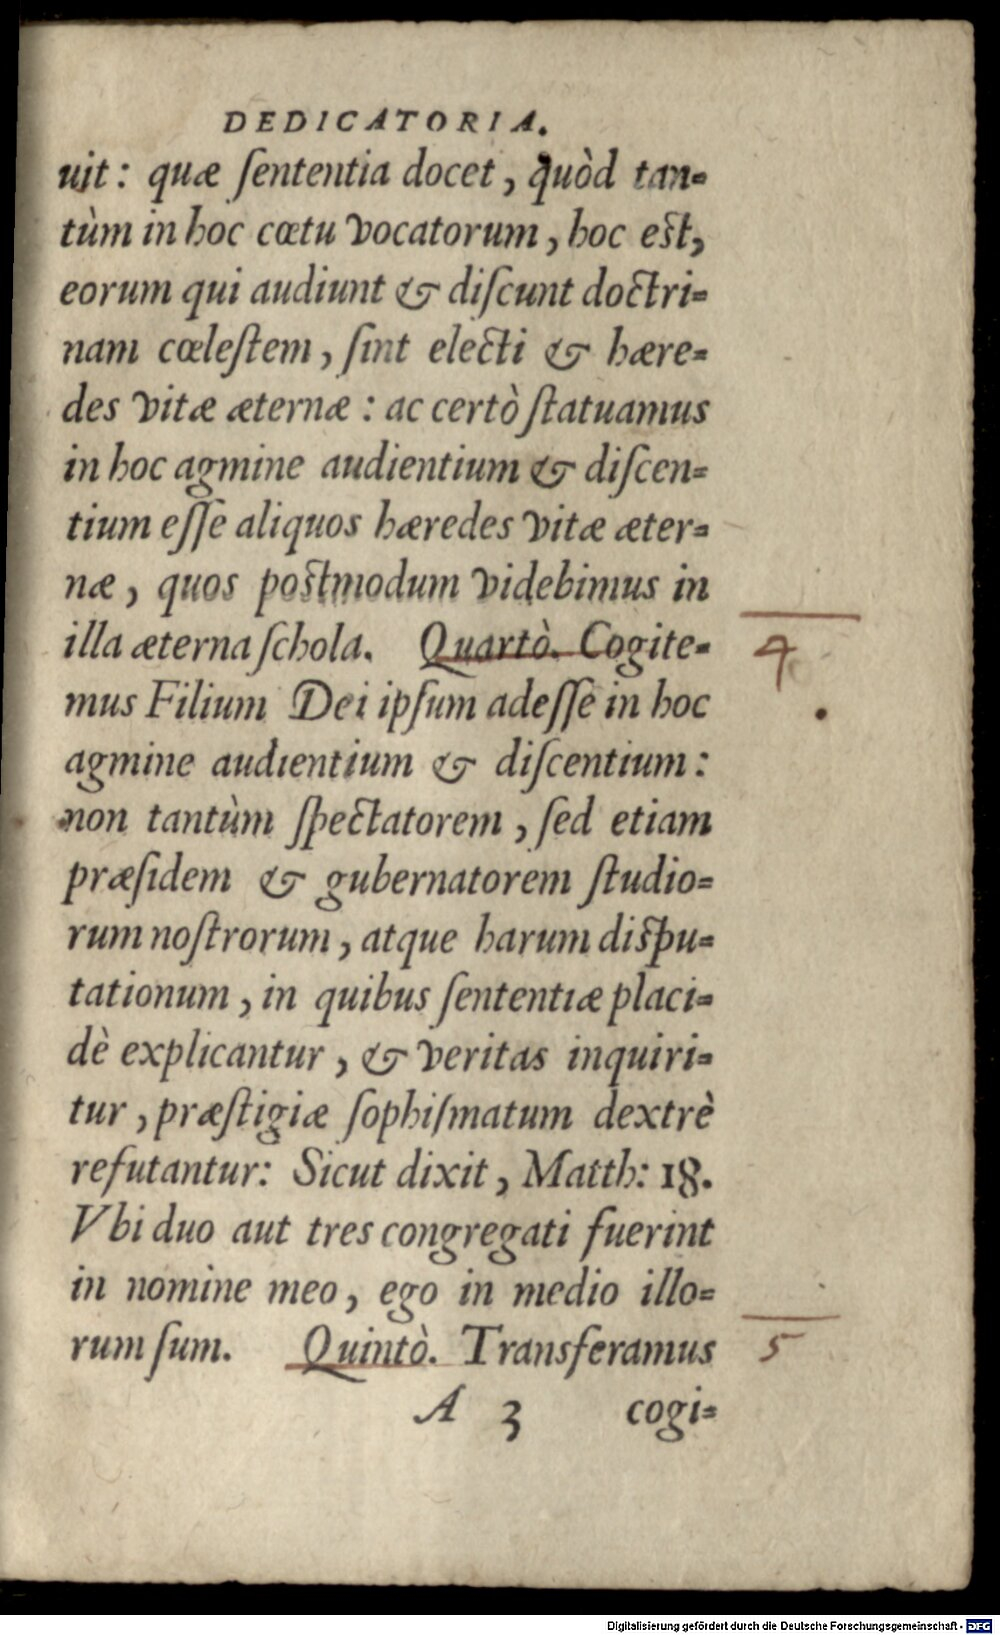 DEDICATORIA.
uit: quæ ſententia docet, quòd tan=
tùm in hoc cœtu vocatorum, hoc est,
eorum qui audiunt & diſcunt doctri=
nam cœleſtem, ſint electi & hære=
des vitæ æternæ: ac certò ſtatuamus
in hoc agmine audientium & diſcen=
tium eſſe aliquos hæredes vitæ æter=
næ, quos postmodum videbimus in
illa æterna ſchola. Quartò. Cogite=
4
mus Filium Dei ipſum adeſſe in hoc
agmine audientium & diſcentium:
non tantùm ſpectatorem, ſed etiam
præſidem & gubernatorem ſtudio=
rum noſtrorum, atque harum dispu=
tationum, in quibus ſententiæ placi=
dè explicantur, & veritas inquiri=
tur, præſtigiæ ſophiſmatum dextrè
refutantur: Sicut dixit, Matth: 18.
Vbi duo aut tres congregati fuerint
in nomine meo, ego in medio illo=
rum ſum. Quintò. Transferamus
5
A 3 cogi=
Digitalisierung gefördert durch die Deutsche Forschungsgemeinschaft - DFG